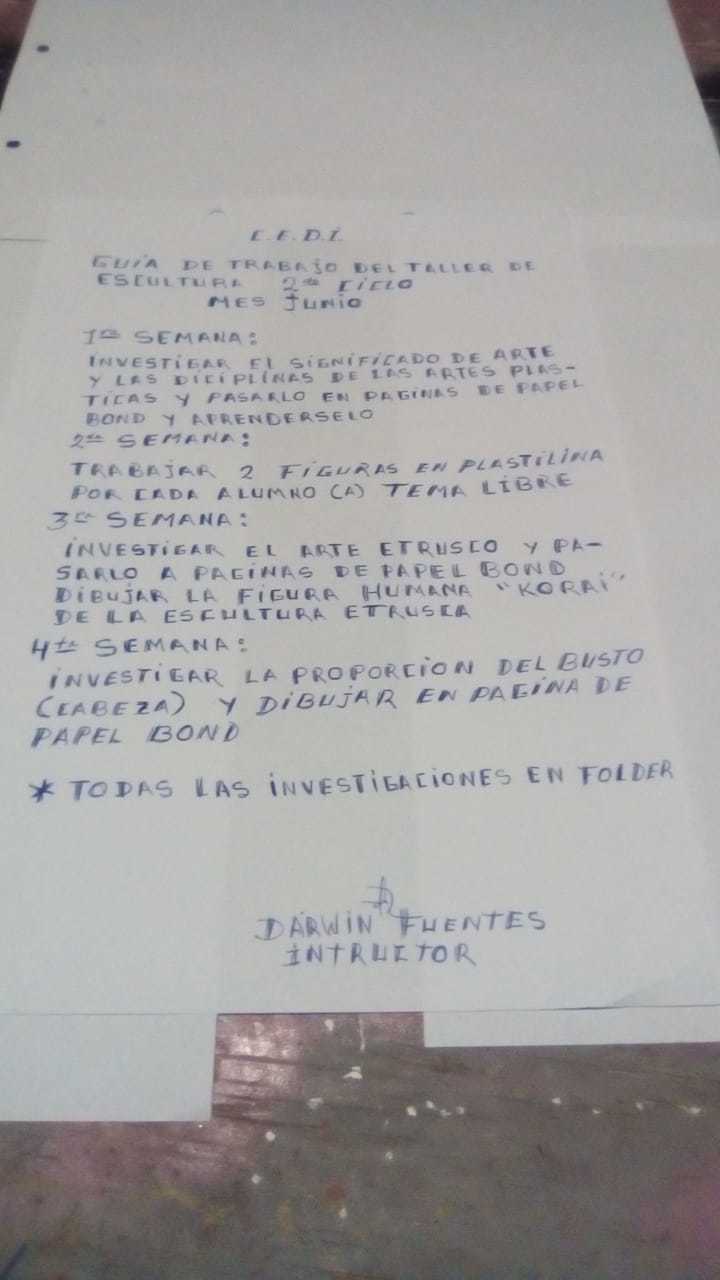 C.E.D.I.
GUIA DE TRABAJO DEL TALLER DE
ESCULTURA 2do CICLO
MES JUNIO
1ra SEMANA:
INVESTIGAR EL SIGNIFICADO DE ARTE
Y LAS DICIPLINAS DE LAS ARTES PLAS-
TICAS Y PASARLO EN PAGINAS DE PAPEL
BOND Y APRENDERSELO
2da SEMANA:
TRABAJAR 2 FIGURAS EN PLASTILINA
POR CADA ALUMNO (A) TEMA LIBRE
3ra SEMANA:
INVESTIGAR EL ARTE ETRUSCO Y PA-
SARLO A PAGINAS DE PAPEL BOND
DIBUJAR LA FIGURA HUMANA "KORAI"
DE LA ESCULTURA ETRUSCA
4ta SEMANA:
INVESTIGAR LA PROPORCION DEL BUSTO
(CABEZA) Y DIBUJAR EN PAGINA DE
PAPEL BOND
* TODAS LAS INVESTIGACIONES EN FOLDER
DARWIN FUENTES
INTRUCTOR